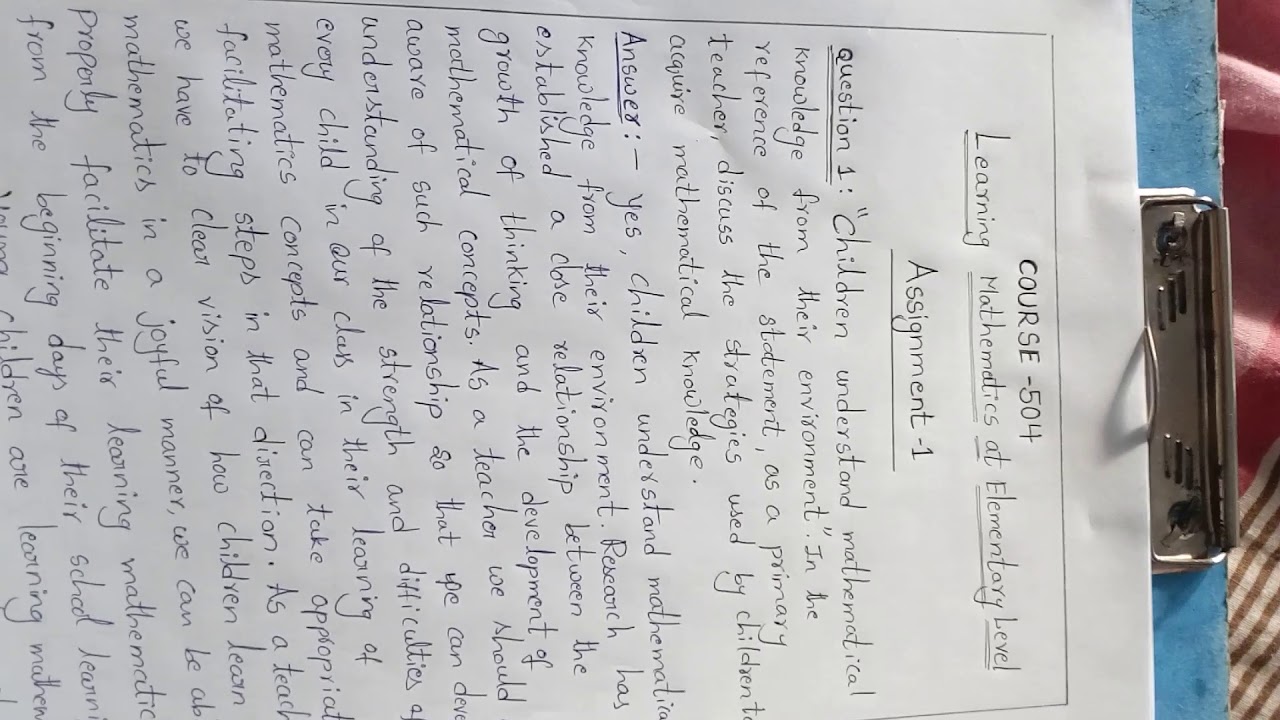 COURSE -504
Learning Mathematics at Elementary Level
Assignment -1
Question 1: "Children understand mathematical
knowledge from their environment." In the
reference of the statement, as a primary
teacher, discuss the strategies used by children to
acquire mathematical knowledge.
Answer:- Yes, children understand mathematica
knowledge from their environment. Research has
established a close relationship between the
growth of thinking and the development of
mathematical concepts. As a teacher we should
aware of such relationship so that we can deve
understanding of the strength and difficulties of
every child in our class in their learning of
mathematics concepts and can take appropriat
facilitating steps in that direction. As a teach
we have to clear vision of how children learn
mathematics in a joyful manner, we can be ab
properly facilitate their learning mathematic
from the beginning days of their school learni
Young children are learning mathem